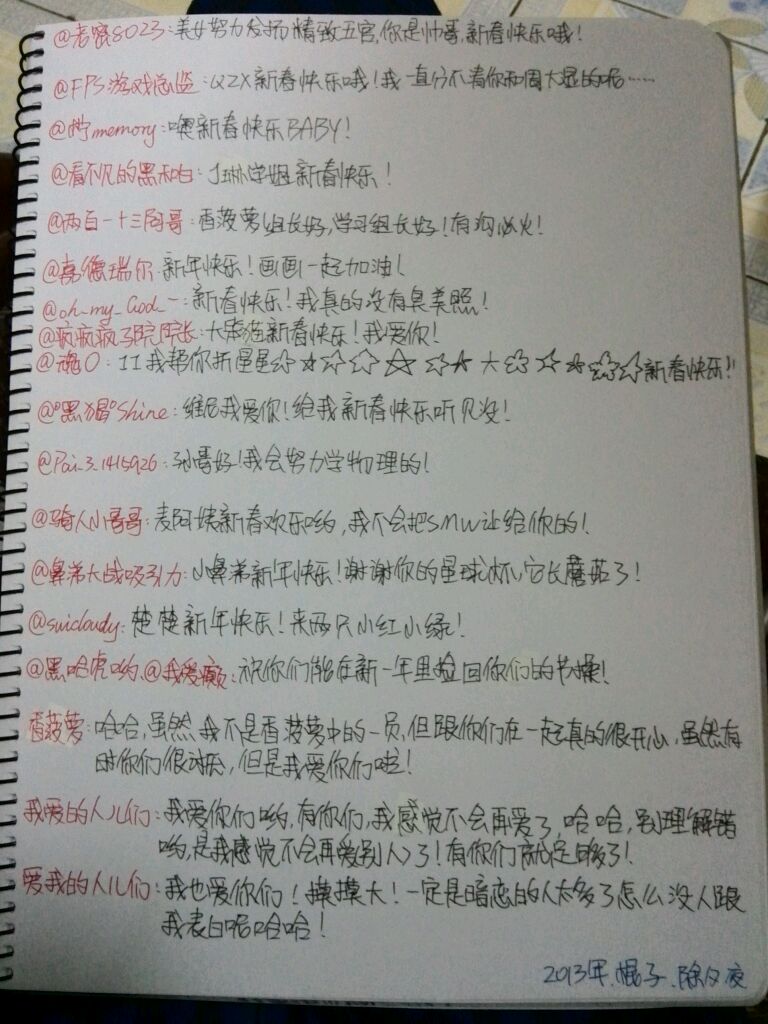 @老密8023:美女努力发扬精致五官,你是帅哥,新春快乐哦!
@FPS游戏总监:QZX新春快乐哦!我一直分不清你和周大显的呢……
@柠memory:噢新春快乐BABY!
@看不见的黑和白:J琳学姐新春快乐!
@两百一十三阿哥:香菠萝组长好,学习组长好!有沟必火!
@嘉德瑞尔:新年快乐!画画一起加油!
@oh_my_God_-:新春快乐!我真的没有臭美照!
@疯疯疯子院院长:大笨猫新春快乐!我爱你!
@魂0:II我帮你折星星☆★☆☆☆☆★大☆☆★☆☆新春快乐!!
@°黑猖°Shine:维尼我爱你!给我新春快乐听见没!
@Pai_3_1415926:孙哥好!我会努力学物理的!
@骑人小哥哥:麦阿姨新春欢乐哟,我不会把SMW让给你的!
@鼻弟大战吸引力:小鼻弟新年快乐!谢谢你的星球杯它长蘑菇了!
@suicloudy:楚楚新年快乐!来两只小红小绿!
@黑哈虎哟.@我爱癫:祝你们能在新一年里捡回你们的节操!
香菠萝:哈哈,虽然我不是香菠萝中的一员,但跟你们在一起真的很开心,虽然有
时你们很讨厌,但是我爱你们啦!
我爱的人儿们:我爱你们哟,有你们,我感觉不会再爱了,哈哈,别理解错
哟,是我感觉不会再爱别人了!有你们就足够了!
爱我的人儿们:我也爱你们!摸摸大!一定是暗恋的人太多了怎么没人跟
我表白呢哈哈!
2013年.棍子.除夕夜